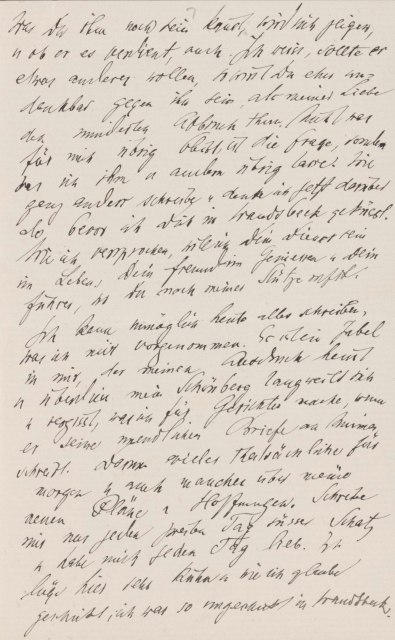 was Du ihm noch sein kannst, wird sich zeigen,
u ob er es verdient, auch. Ich weiß, sollte er
etwas anderes wollen, wirst Du eher un-
denkbar gegen ihn sein, als meiner Liebe
den mindesten Abbruch thun. Nicht was
für mich übrig bleibt ist die Frage, sondern
was ich ihm u andern übrig lasse! Wie
ganz anders schreibe u denke ich jetzt darüber
als bevor ich Dich in Wandsbeck geküsst.
Wie ich versprochen, will ich Dein Diener sein
im Leben, Dein Freund im Geniessen u Dein
Führer, wo Du noch meiner Stütze
Ich kann unmöglich heute alles schreiben,
was ich mir vorgenommen. Es ist ein
in mir, der meinen Ausdruck hemt
u überdies mein Schönberg langweilt sich
u vergisst, was er für Gesichter mache, wenn
er seine unendlichen Briefe an Minna
schreibt. Darum vieles Thatsächliche für
morgen u auch manches über meine
neuen Pläne u Hoffnungen. Schreibe
mir nur jeden zweiten Tag süsser Schatz
u habe mich jeden Tag lieb. Ich
lüge hier sehr kühn u wie ich glaube
geschickt, ich war so ungeschickt in Wandsbeck.